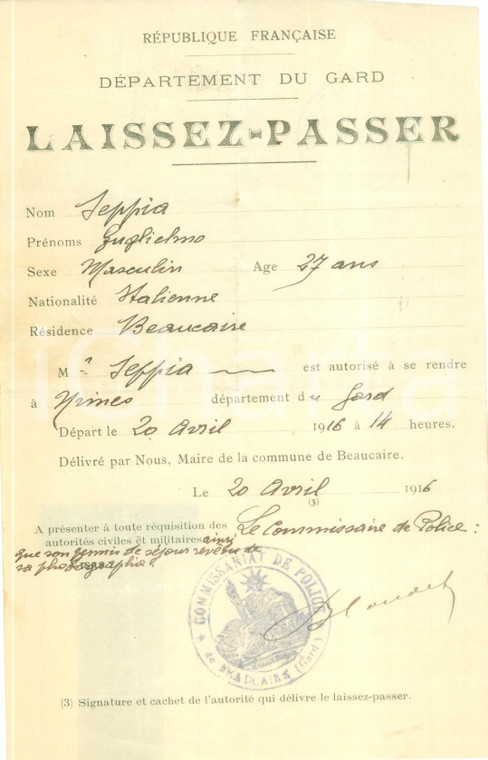 RÉPUBLIQUE FRANÇAISE
DÉPARTEMENT DU GARD
LAISSEZ-PASSER
Nom Seppia
Prénoms Guglielmo
Sexe Masculin Age 27 ans
Nationalité Italienne
Résidence Beaucaire
M r Seppia est autorisé à se rendre
à Nimes département du Gard
Départ le 20 Avril 1916 à 14 heures.
Délivré par Nous, Maire de la commune de Beaucaire.
Le 20 Avril 1916
(3)
A présenter à toute réquisition des
autorités civiles et militaires ainsi
que son permis de séjour revêtu de
sa photographie.
Le Commissaire de Police :
COMMISSARIAT DE POLICE
de BEAUCAIRE (Gard)
(3) Signature et cachet de l'autorité qui délivre le laissez-passer.